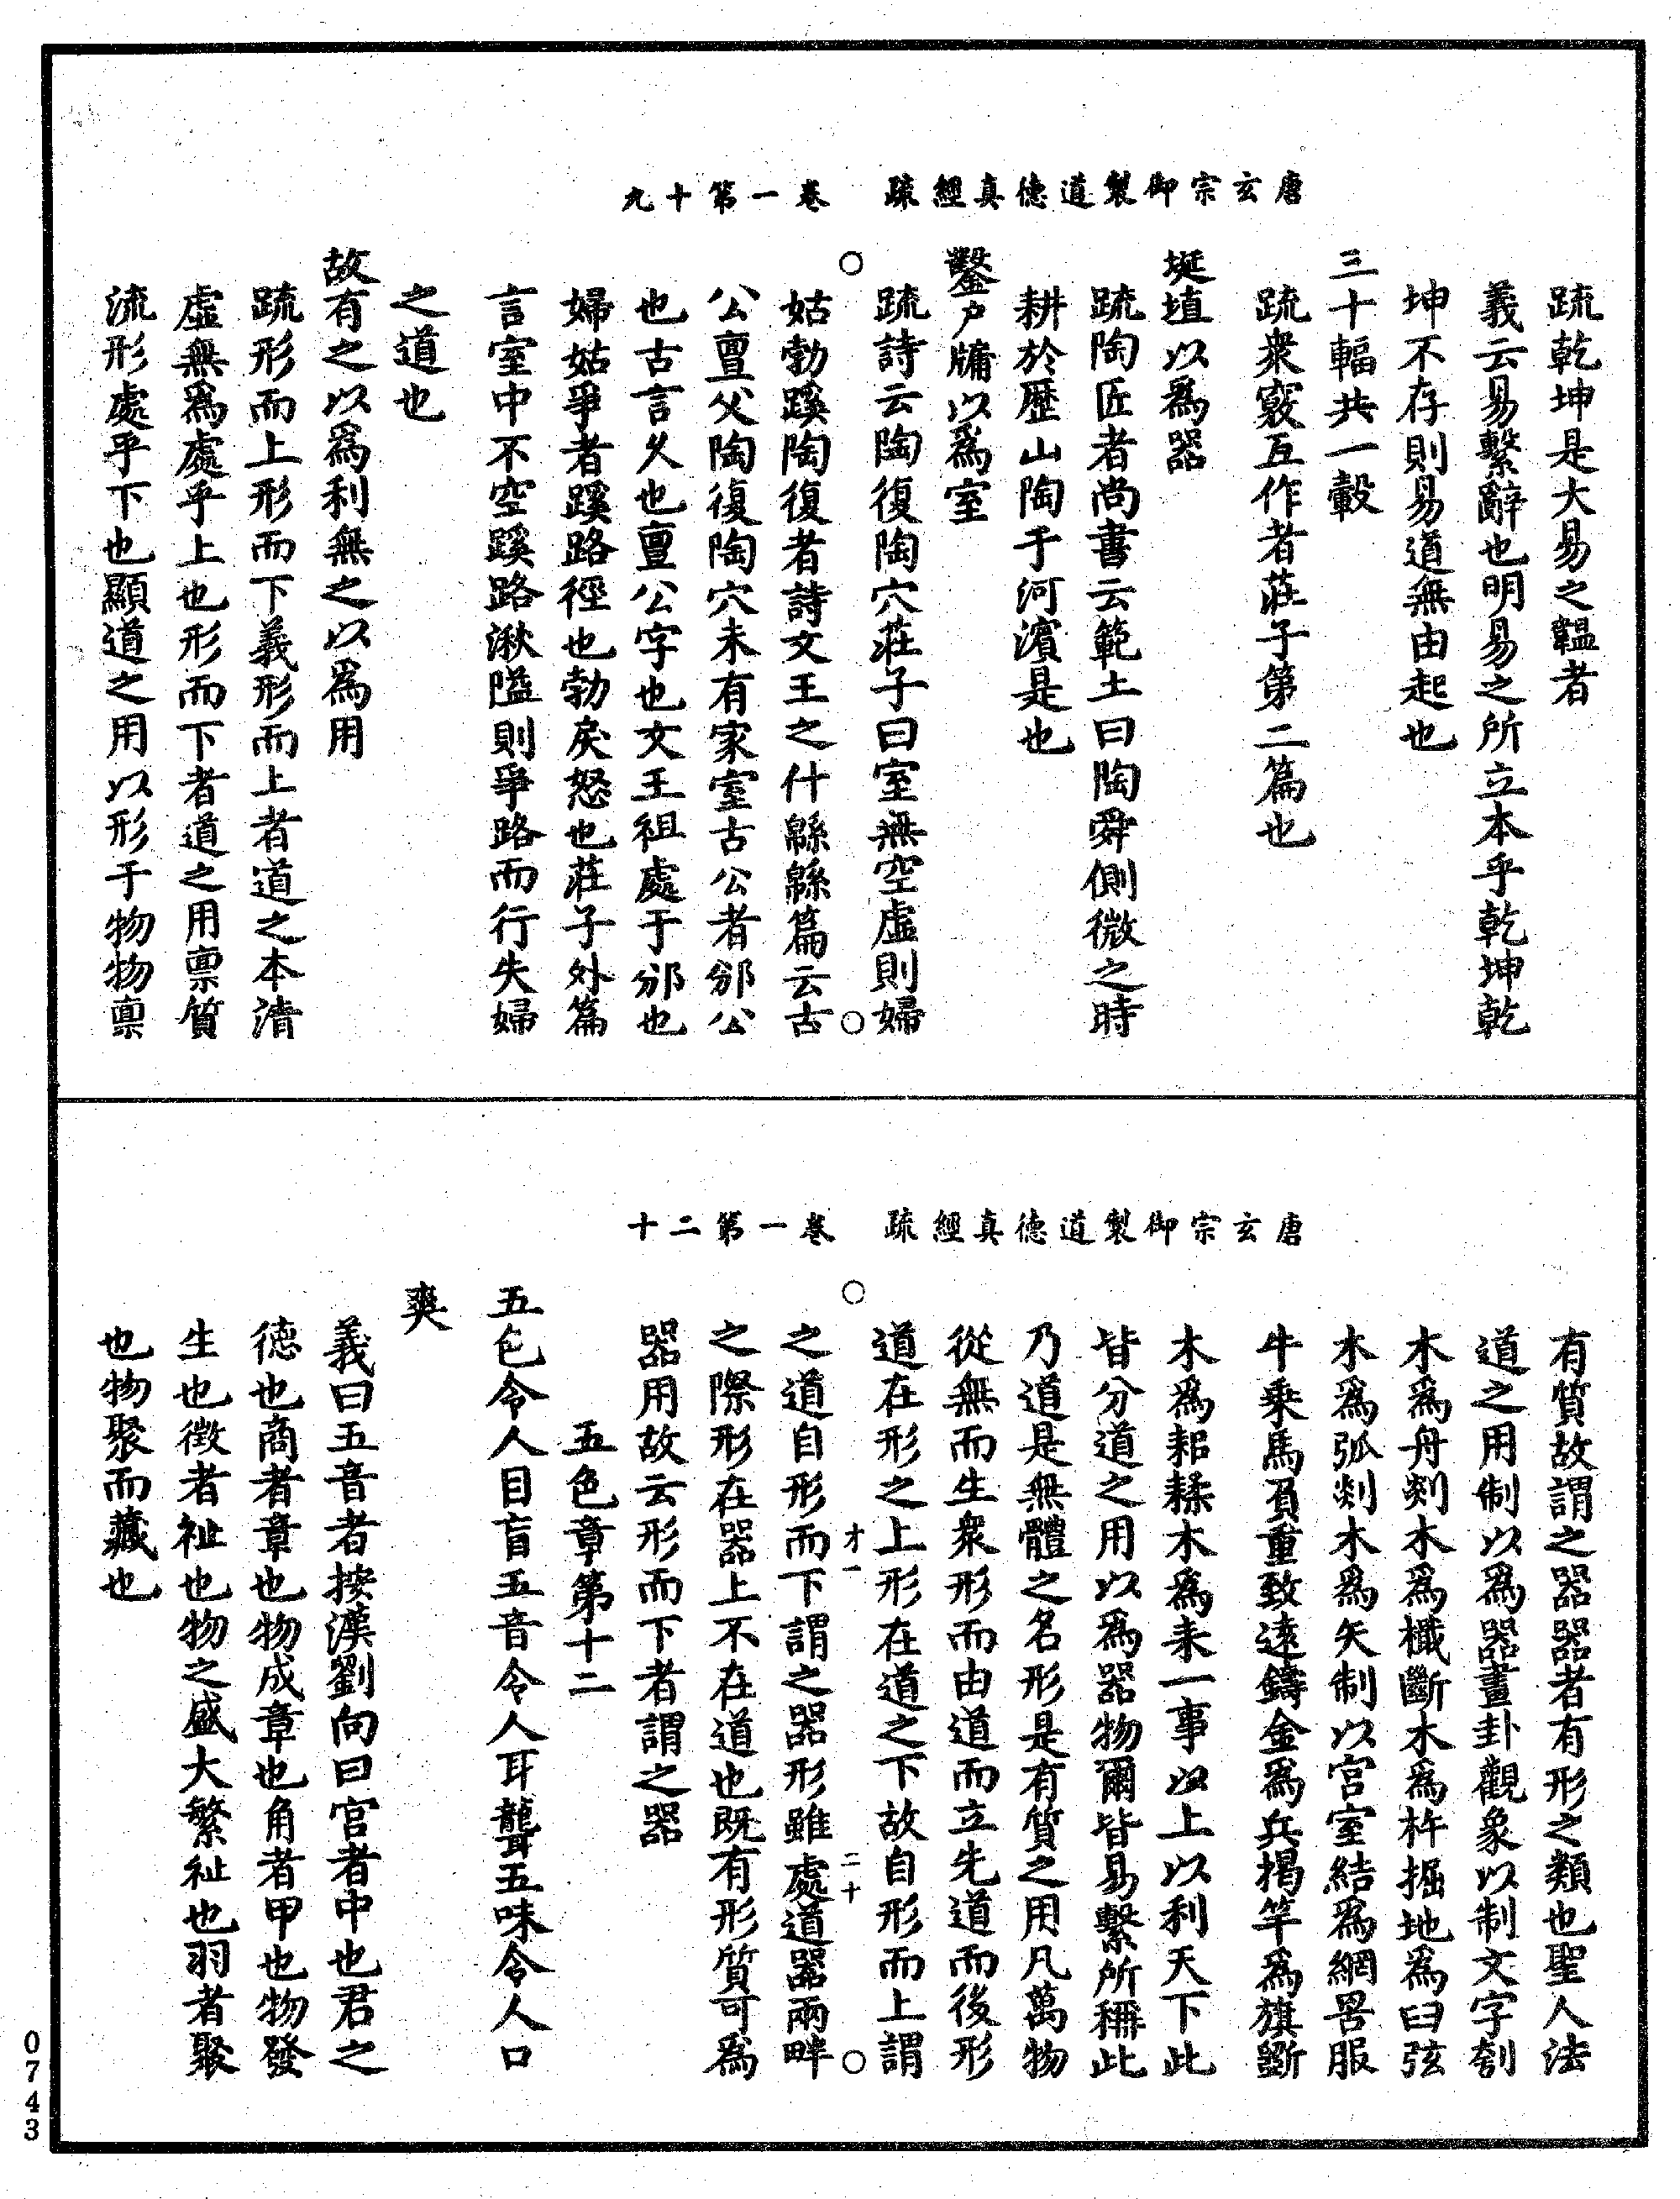 唐玄宗御製道德真經疏　卷一第十九
疏乾坤是大易之韞者
義云易繫辭也明易之所立本乎乾坤乾
坤不存則易道無由起也
三十輻共一轂
疏衆竅互作者莊子第二篇也
埏埴以爲器
疏陶匠者尚書云範土曰陶舜側微之時
耕於歷山陶于河濱是也
鑿戶牖以爲室
疏詩云陶復陶穴莊子曰室無空虛則婦
姑勃蹊陶復者詩文王之什緜緜篇云古
公亶父陶復陶穴未有家室古公者邠公
也古言久也亶公字也文王祖處于邠也
婦姑爭者蹊路徑也勃戾怒也莊子外篇
言室中不空蹊路湫隘則爭路而行失婦
之道也
故有之以爲利無之以爲用
疏形而上形而下義形而上者道之本清
虛無爲處乎上也形而下者道之用禀質
流形處乎下也顯道之用以形于物物禀
唐玄宗御製道德真經疏　卷一第二十
有質故謂之器器者有形之類也聖人法
道之用制以爲器畫卦觀象以制文字刳
木爲舟剡木爲檝斷木爲杵掘地爲臼弦
木爲弧剡木爲矢制以宮室結爲網罟服
牛乘馬負重致遠鑄金爲兵揭竿爲旗斵
木爲耜揉木爲耒一事以上以利天下此
皆分道之用以爲器物爾皆易繫所稱此
乃道是無體之名形是有質之用凡萬物
從無而生衆形而由道而立先道而後形
道在形之上形在道之下故自形而上謂
才一　二十
之道自形而下謂之器形雖處道器兩畔
之際形在器上不在道也既有形質可爲
器用故云形而下者謂之器
五色章第十二
五色令人目盲五音令人耳聾五味令人口
爽
義曰五音者按漢劉向曰宮者中也君之
德也商者章也物成章也角者甲也物發
生也徵者祉也物之盛大繁祉也羽者聚
也物聚而藏也
0743